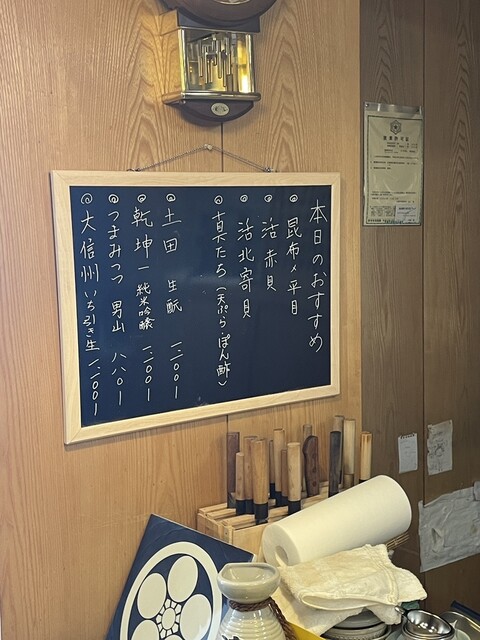 本日のおすすめ
昆布〆平目
活赤貝
活北寄貝
真だち(天ぷら・ぽん酢)
土田 生酛 一、二〇〇-
乾坤一 純米吟醸 一、二〇〇-
つまみつつ 男山 八八〇-
大信州 いち引き生 一、二〇〇-